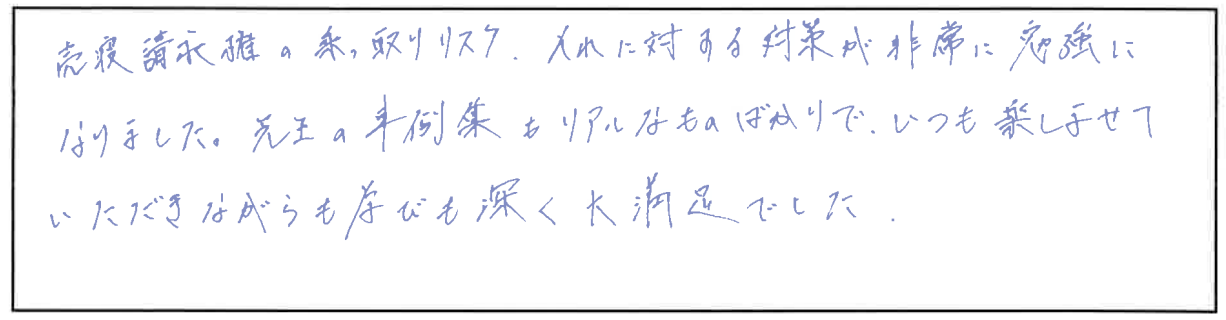 売渡請求権の乗っ取りリスク、それに対する対策が非常に勉強に
なりました。先生の事例集もリアルなものばかりで、いつも楽しませて
いただきながらも学びも深く大満足でした。